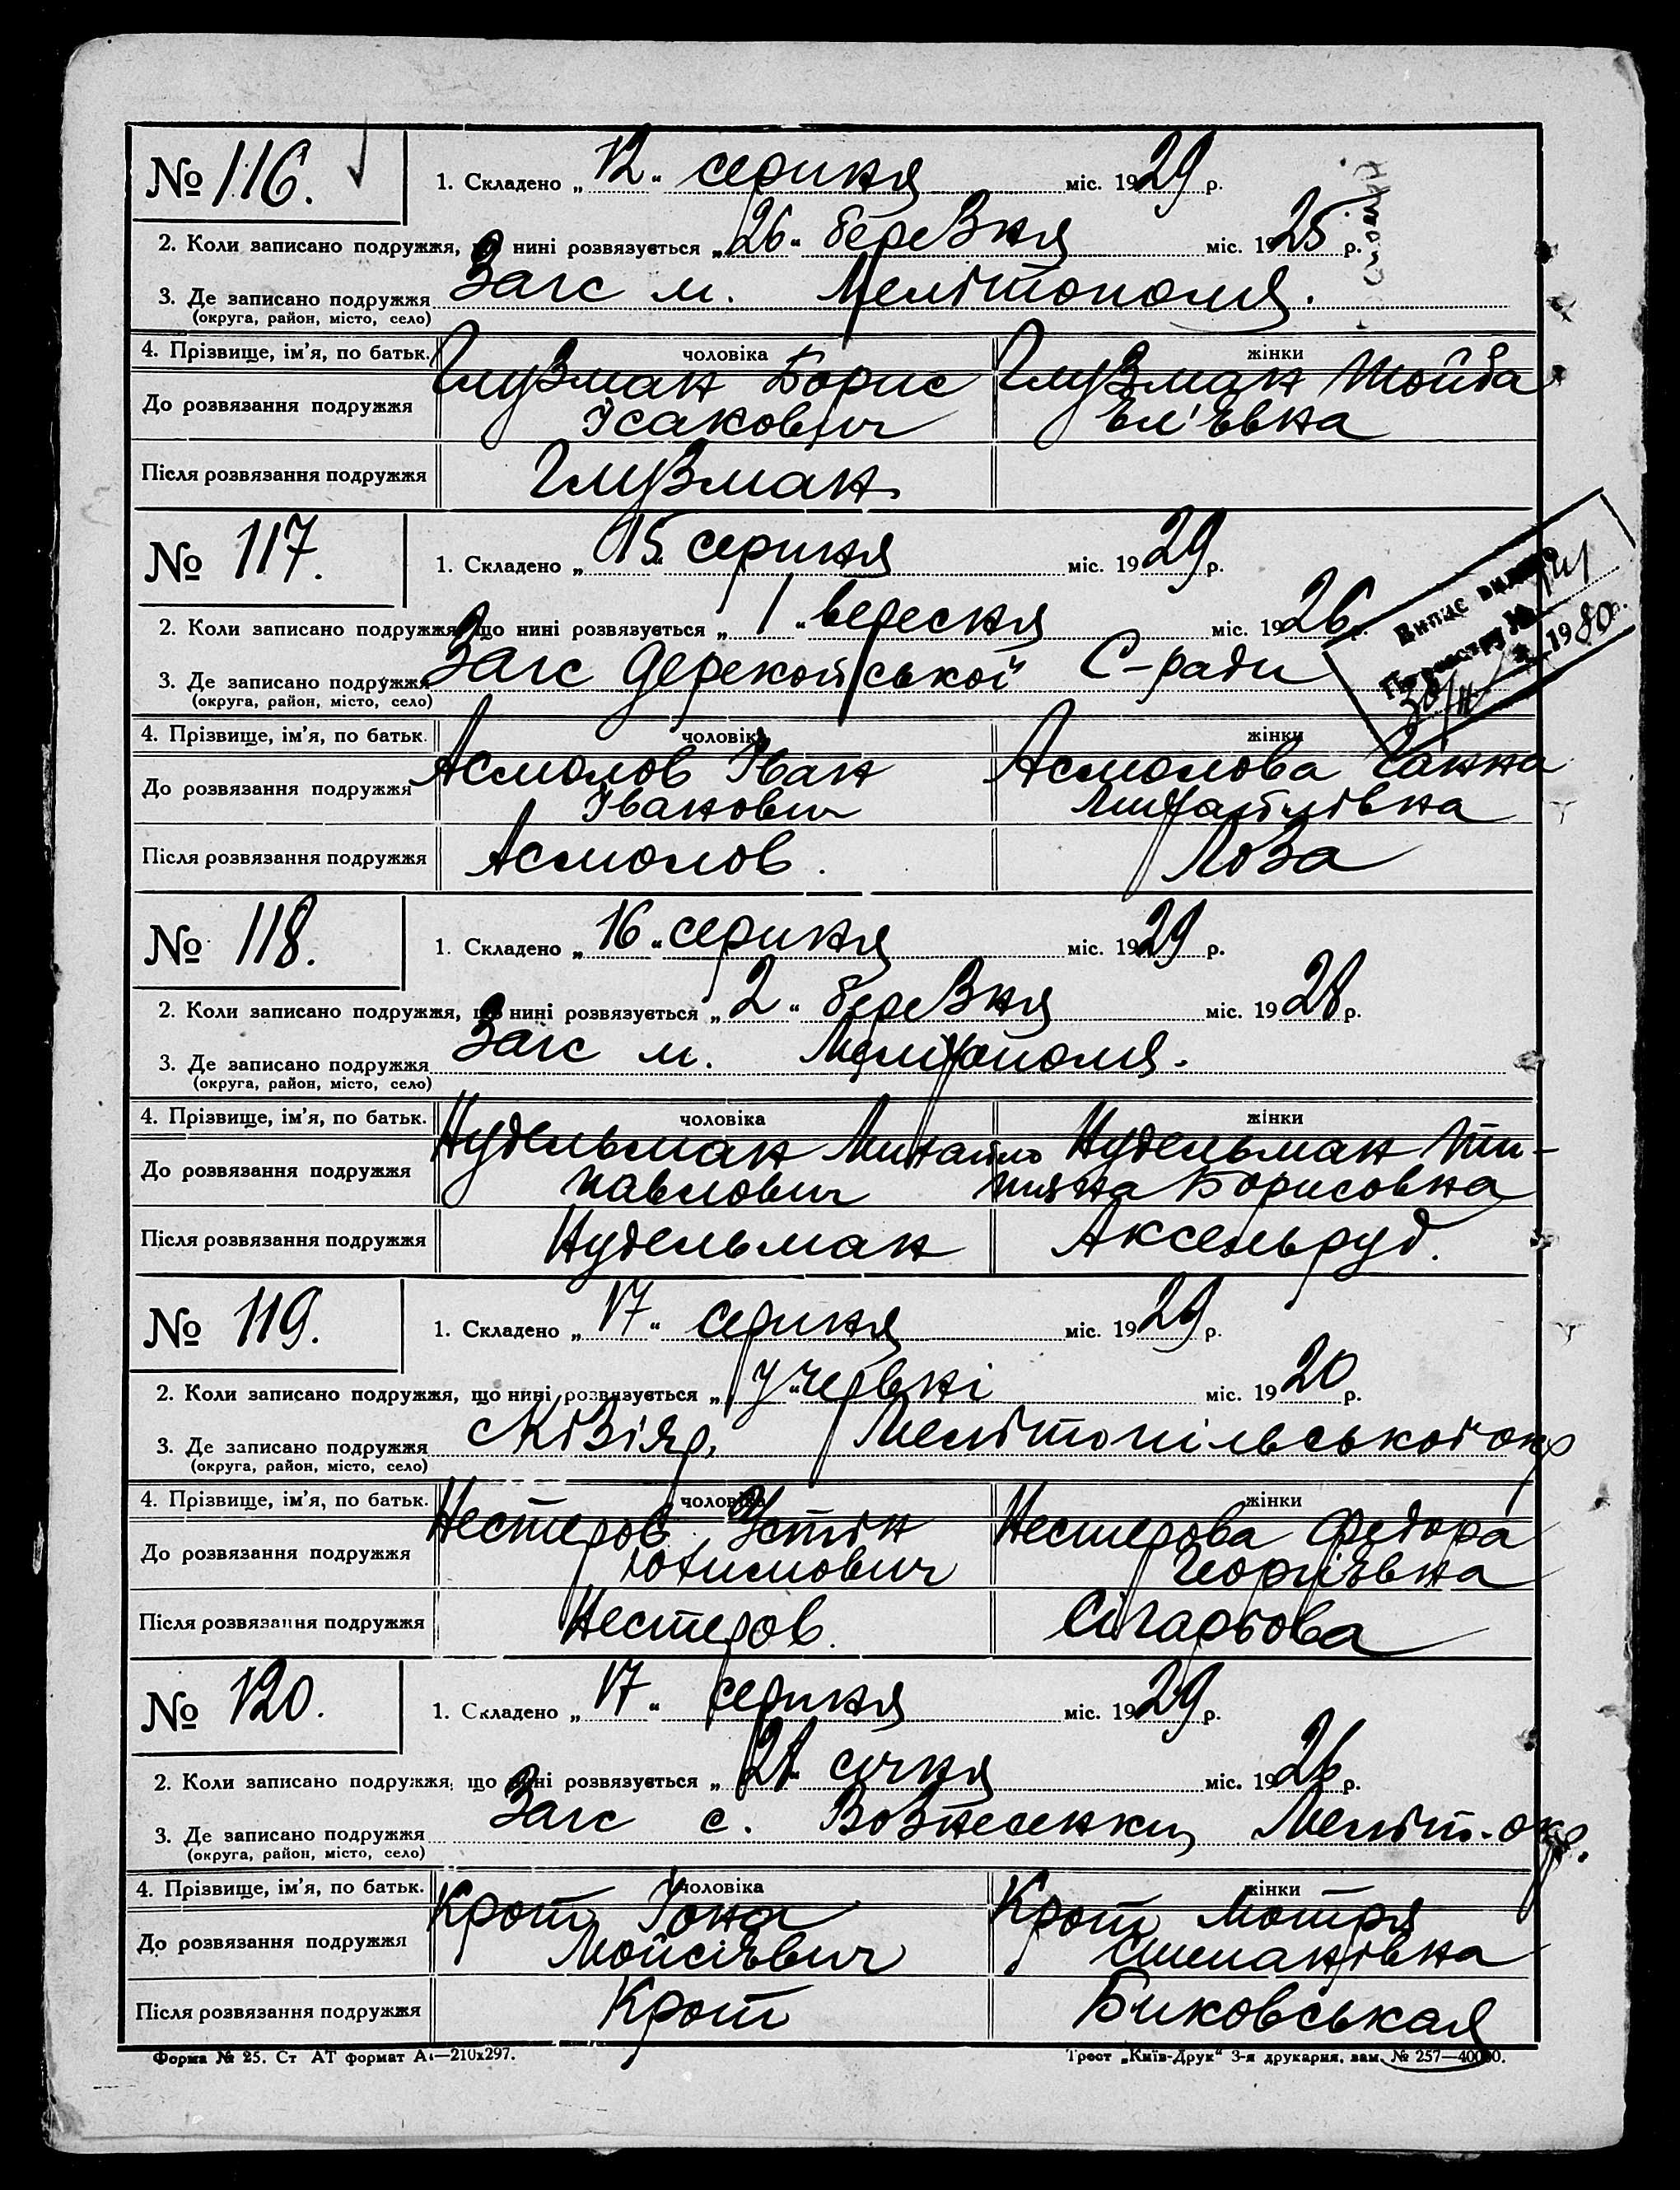 № 116.
1. Складено „12“ серпня міс. 1929 р.
2. Коли записано подружжя, що нині розвязується „26“ березня міс. 1925 р.
3. Де записано подружжя Загс м. Мелітополя.
(округа, район, місто, село)
4. Прізвище, ім’я, по батьк. чоловіка жінки
До розвязання подружжя Глузман Борис Глузман Тойба
Ісакович Ел'євна
Після розвязання подружжя Глузман
№ 117.
1. Складено „15“ серпня міс. 1929 р.
2. Коли записано подружжя, що нині розвязується „1“ вересня міс. 1926 р.
3. Де записано подружжя Загс Дерекойської С-ради
(округа, район, місто, село)
Випис видано
По реєстру №
1980
4. Прізвище, ім’я, по батьк. чоловіка жінки
До розвязання подружжя Асмолов Іван Асмолова Ганна
Іванович Михайлівна
Після розвязання подружжя Асмолов. Лоза
№ 118.
1. Складено „16“ серпня міс. 1929 р.
2. Коли записано подружжя, що нині розвязується „2“ березня міс. 1928 р.
3. Де записано подружжя Загс м. Мелітополя.
(округа, район, місто, село)
4. Прізвище, ім’я, по батьк. чоловіка жінки
До розвязання подружжя Нудельман Михайло Нудельман
Павлович Борисовна
Після розвязання подружжя Нудельман Аксельруд.
№ 119.
1. Складено „17“ серпня міс. 1929 р.
2. Коли записано подружжя, що нині розвязується „У“ червні міс. 1920 р.
3. Де записано подружжя с Кізіяр, Мелітопільської окр
(округа, район, місто, село)
4. Прізвище, ім’я, по батьк. чоловіка жінки
До розвязання подружжя Нестеров Устін Нестерова Федора
Юхимович Георгієвна
Після розвязання подружжя Нестеров. Сігарьова
№ 120.
1. Складено „17“ серпня міс. 1929 р.
2. Коли записано подружжя, що нині розвязується „21“ січня міс. 1926 р.
3. Де записано подружжя Загс с. Вознесенки, Меліт. окр.
(округа, район, місто, село)
4. Прізвище, ім’я, по батьк. чоловіка жінки
До розвязання подружжя Крот Іона Крот Мотря
Мойсієвич Степанівна
Після розвязання подружжя Крот Биковськая
Форма № 25. Ст АТ формат А4—210х297.
Трест „Київ-Друк“ 3-я друкарня, зам. № 257—40000.